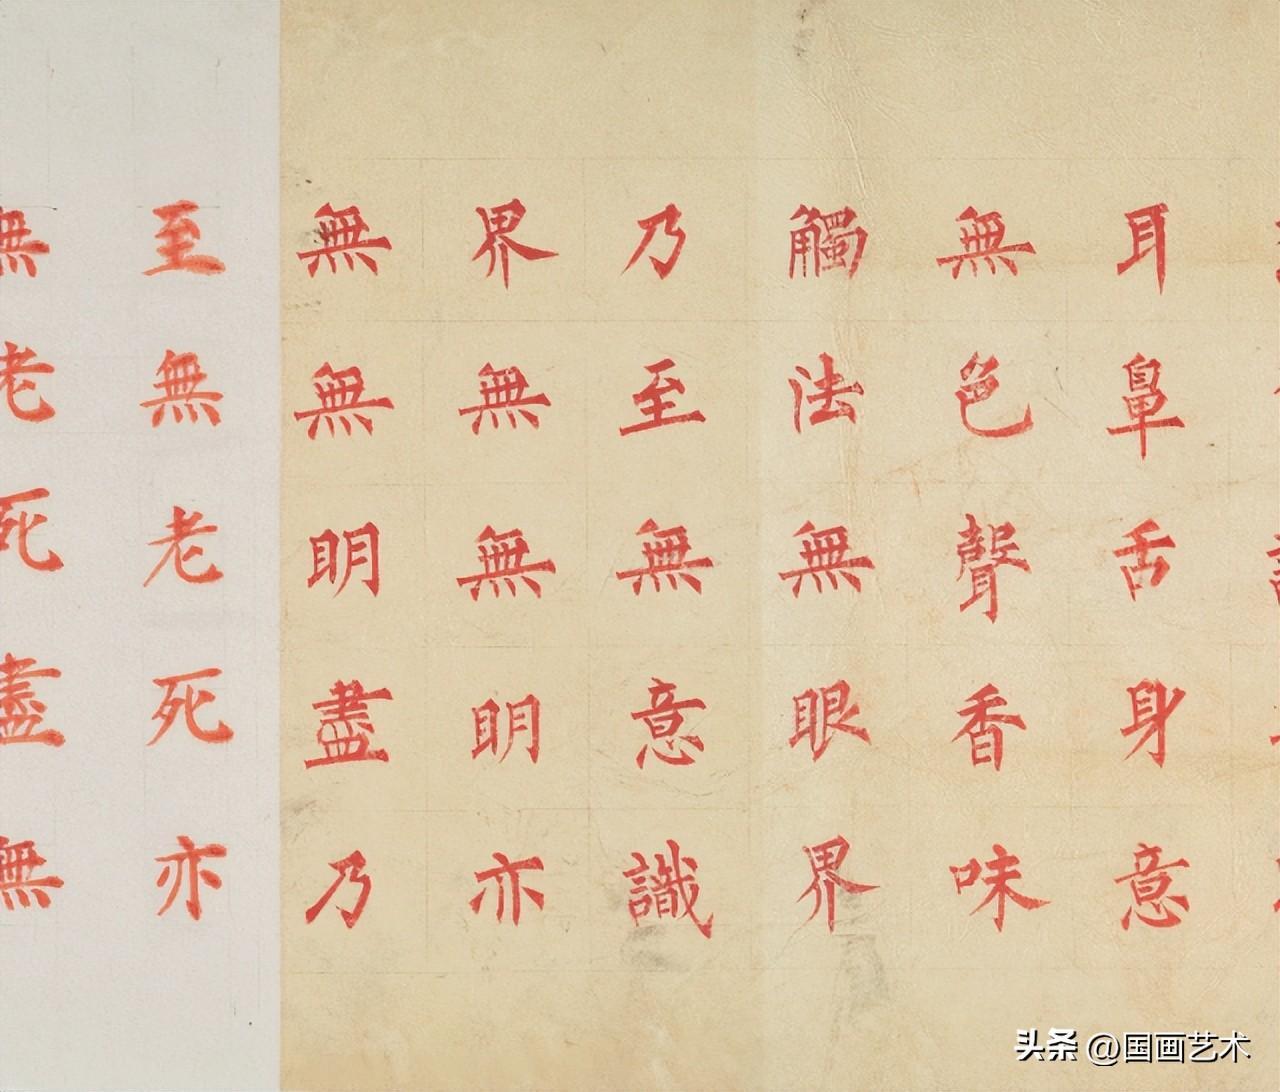 耳鼻舌身意
無色聲香味
觸法無眼界
乃至無意識
界無無明亦
無無明盡乃
至無老死亦
無老死盡無
头条 @国画艺术